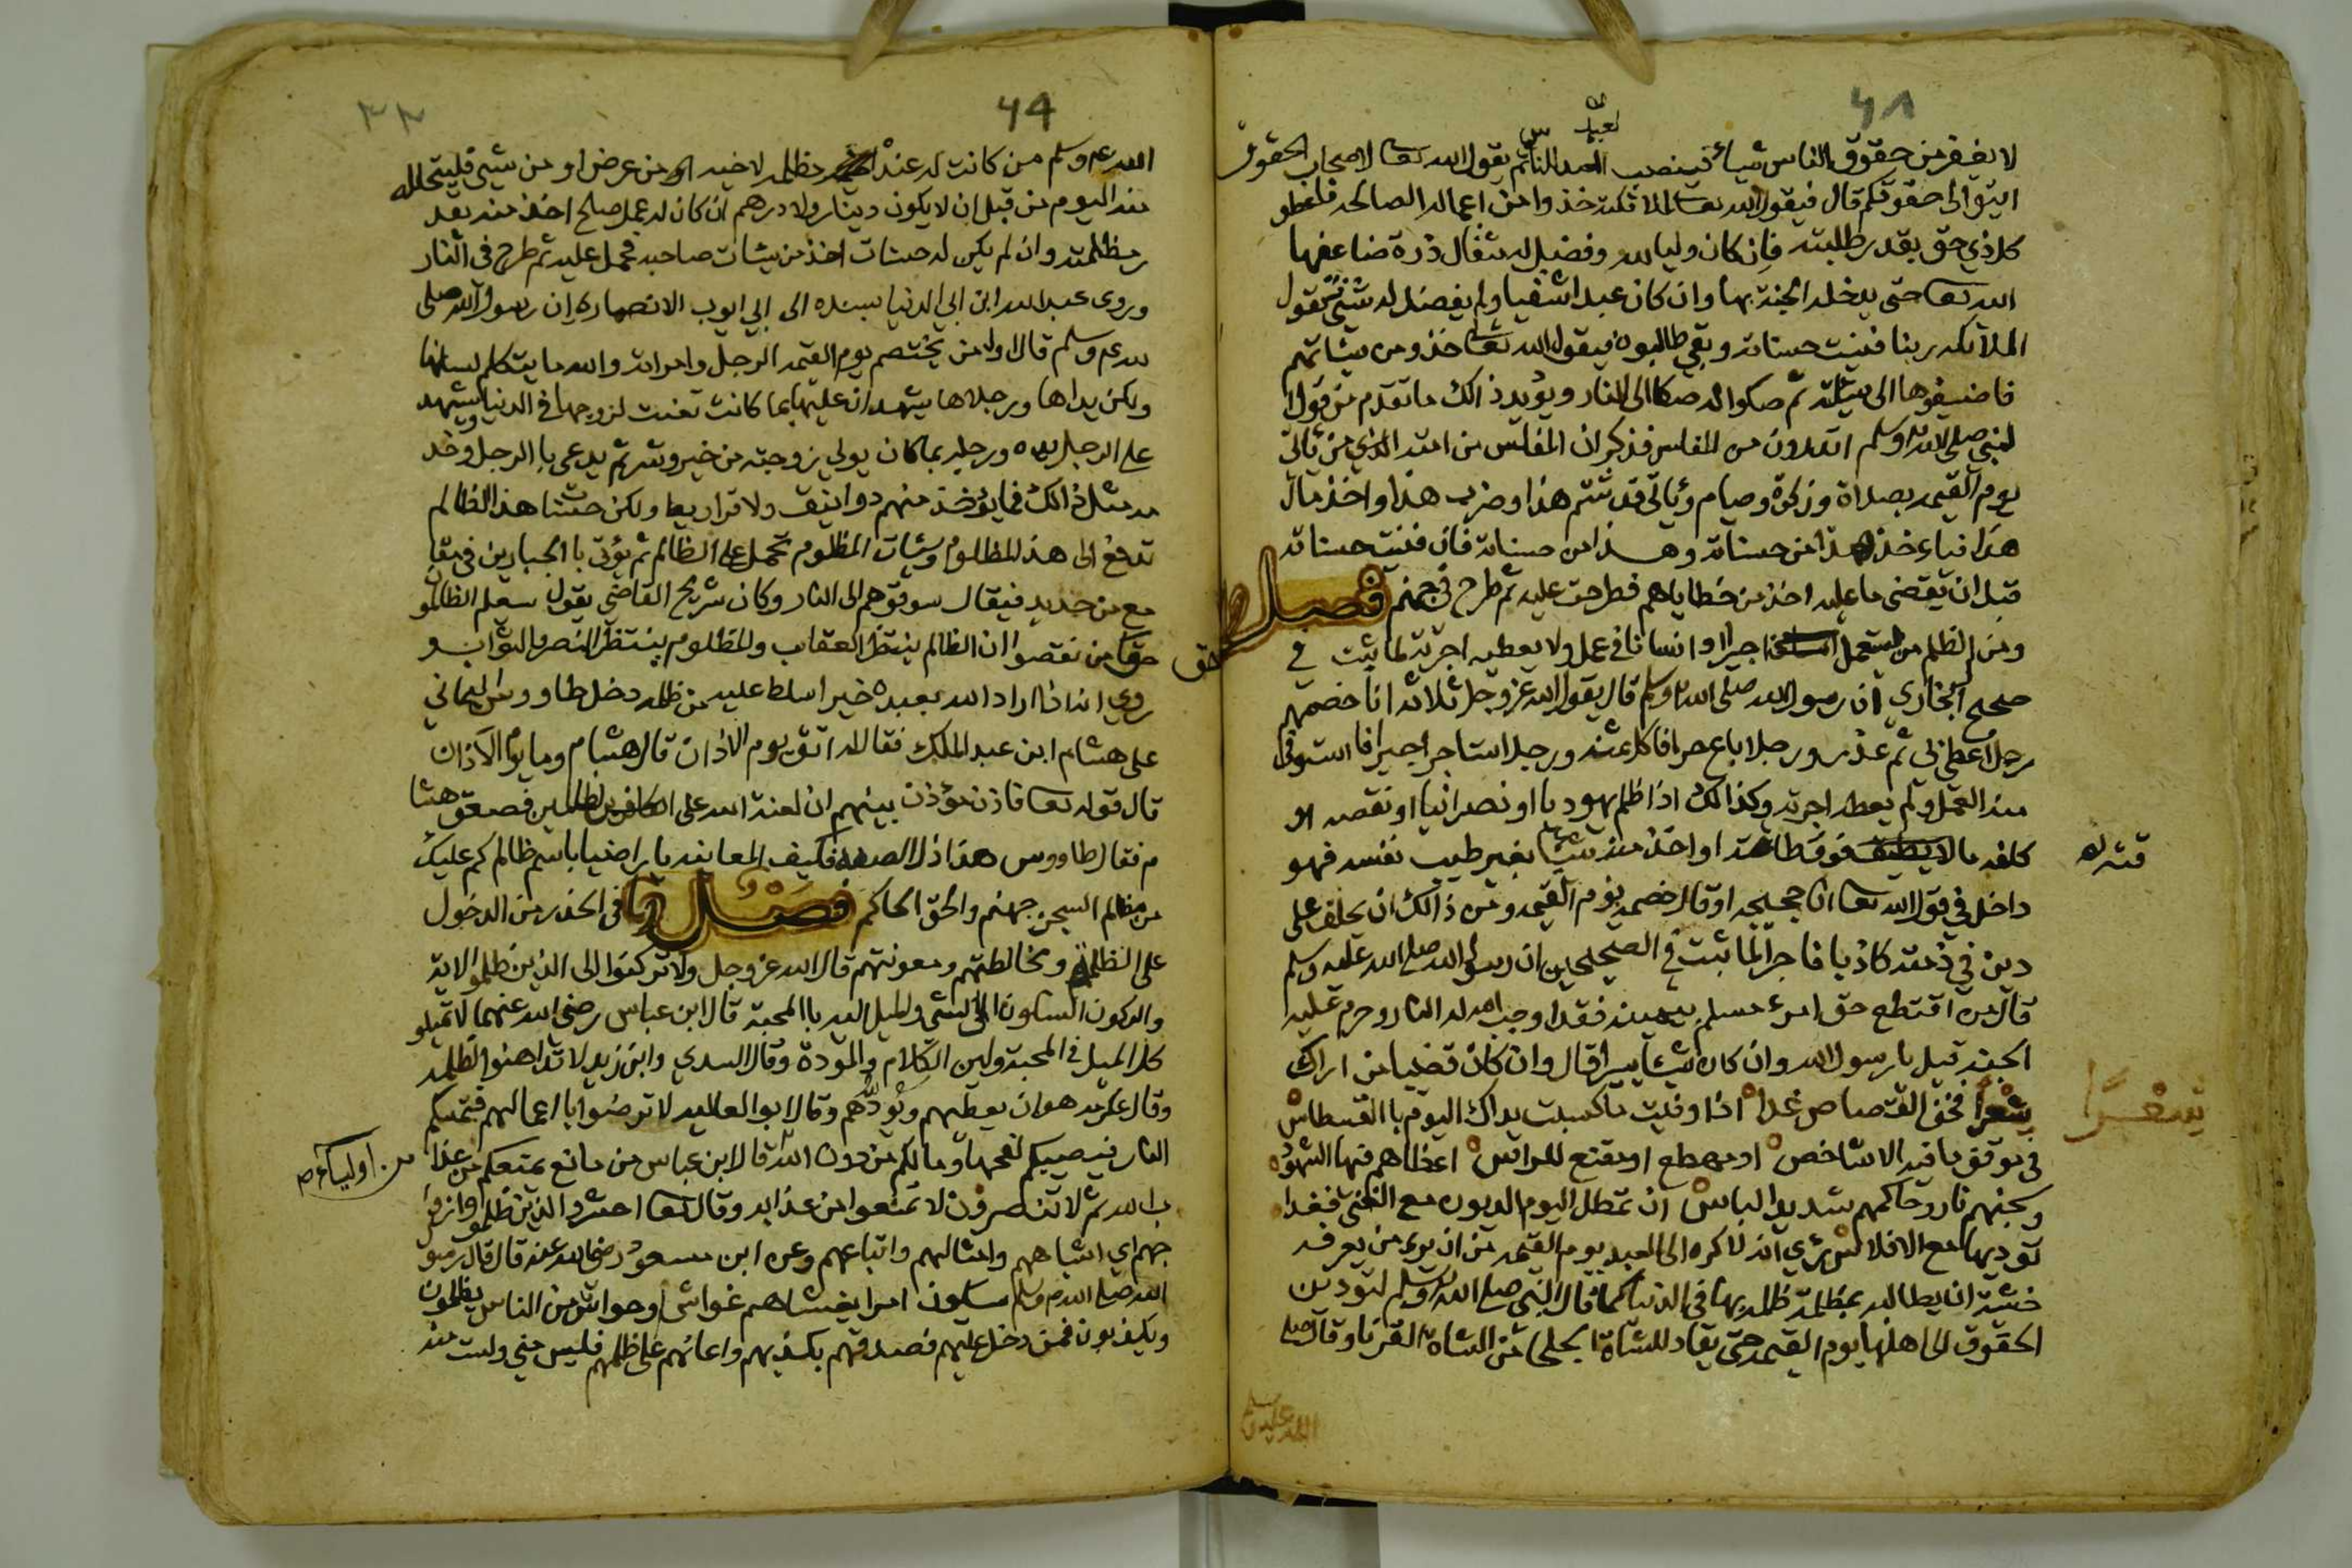 ٦٨
لا يغفر من حقوق الناس شياء فينصب العبد للناس ثم يقول الله تعا لاصحاب الحقوق
ايتوا الى حقوقكم قال فيقول الله تعا لملائكته خذوا من اعماله الصالحه فاعطو
كل ذي حق بقدر طلبته فإن كان وليا لله وفضل له مثقال ذرة ضاعفها
الله تعا حتى يدخله الجنة بها وان كان عبدا شقيا ولم يفضل له شيئ فتقول
الملائكه ربنا فنيت حسناته وبقي طالبوه فيقول الله تعا خذو من سيئاتهم
فاضيفوها الى سيئاته ثم صكوا له صكا الى النار ويؤيد ذالك ما تقدم من قول
لنبي صلى الله عليه وسلم اتدرون من المفلس فذكر ان المفلس من امته الذي من يأتي
يوم القيمه بصلاة وزكوة وصيام ويأتي قد شتم هذا وضرب هذا واخذ مال
هذا فياءخذ هذا من حسناته وهذا من حسناته فان فنيت حسناته
قبل ان يقضى ما عليه اخذ من خطاياهم فطرحت عليه ثم طرح في جهنم فصل
ومن الظلم من استعمل اجيرا او انسانا في عمل ولا يعطيه اجرته لما ثبت في
صحيح البخاري ان رسول الله صلى الله عليه وسلم قال يقول الله عز وجل ثلاثه انا خصمهم
رجل اعطى بي ثم غدر ورجلا باع حرا فاكل ثمنه ورجلا استاجر اجيرا فاستوفى
منه العمل ولم يعطه اجرته وكذالك اذا ظلم يهوديا او نصرانيا او نقصه او
كلفه ما لا يطيق فوق طاقته او اخذ منه شيئا بغير طيب نفسه فهو
داخل في قول الله تعا انا حجيجه او قال خصمه يوم القيمه ومن ذالك ان يحلف على
دين في ذمته كاذبا فاجرا لما ثبت في الصحيحين ان رسول الله صلى الله عليه وسلم
قال من اقتطع حق امرء مسلم بيمينه فقد اوجب الله له النار وحرم عليه
الجنه قيل يا رسول الله وان كان شيئا يسيرا قال وان كان قضيبا من اراك
شعرا فخف القصاص غدا اذا وفيت ما كسبت يداك اليوم با القسطاس
في موقف ما فيه الا شاخص او مهطع او مقنع للراس اعضاهم فيها الشهود
وسجنهم نار وحاكمهم شديد الباس ان تمطل اليوم الديون مع الغنى فغدا
تؤديها مع الافلاس روي انه لا كره الى العبد يوم القيمه من ان يرى من يعرفه
خشية ان يطالبه بمظلمة ظلمه بها في الدنيا كما قال النبي صلى الله عليه وسلم لتؤدن
الحقوق الى اهلها يوم القيمه حتى يقاد للشاة الجلحى من الشاة القرنا وقال صلى
الله عليه وسلم
شعرا
حق
٦٩
٣٣
الله عليه وسلم من كانت له عنده مظلمه لاخيه من عرض او من شيئ فليتحلله
منه اليوم من قبل ان لا يكون دينار ولا درهم ان كان له عمل صالح اخذ منه بقد
ر مظلمته وان لم يكن له حسنات اخذ من سيئات صاحبه فحمل عليه ثم طرح في النار
وروى عبد الله ابن ابي الدنيا بسنده الى ابي ايوب الانصاري ان رسول الله صلى
لله عليه وسلم قال اول من يختصم يوم القيمه الرجل وامراته والله ما يتكلم لسانها
ولكن يداها ورجلاها يشهدان عليها بما كانت تعنت لزوجها في الدنيا ويشهد
على الرجل يداه ورجليه بما كان يولي زوجته من خير وشر ثم يدعى با الرجل وخد
مه مثل ذالك فما يؤخذ منهم دوانيق ولا قراريط ولكن حسنات هذا الظالم
تدفع الى هذا المظلوم وسيئات المظلوم تحمل على الظالم ثم يؤتى با الجبارين في مقا
مع من حديد فيقال سوقوهم الى النار وكان شريح القاضي يقول سيعلم الظالمو
حق من نقصوا ان الظالم ينتظر العقاب والمظلوم ينتظر النصر والثواب و
روي انه اذا اراد الله بعبده خيرا سلط عليه من ظلمه دخل طاووس اليماني
على هشام ابن عبد الملك فقال له اتق يوم الاذان قال هشام وما يوم الاذان
قال قوله تعا فاذن مؤذن بينهم ان لعنة الله على الظالمين فصعق هشا
م فقال طاووس هذا ذل الصفه فكيف المعاينه يا راضيا باسم ظالم كم عليك
من مظالم السجن جهنم والحق الحاكم فصل في الحذر من الدخول
على الظلمة ومخالطتهم ومعونتهم قال الله عز وجل ولا تركنوا الى الذين ظلموا الاية
والركون السكون الى الشئ والميل اليه با المحبة قال ابن عباس رضى الله عنهما لا تميلو
كل الميل في المحبة ولين الكلام والمودة وقال السدي وابن زيد لا تداهنوا الظلمه
وقال عكرمه هو ان يعطيهم ويودهم وقال ابو العاليه لا ترضوا با اعمالهم فتمسكم
النار فيصيبكم لفحها وما لكم من دون الله قال ابن عباس من مانع يمنعكم من عذا
من اولياء
ب الله ثم لا تنصرون لا تمنعوا من عذابه وقال تعا احشرو الذين ظلموا وازوا
جهم اي اشباههم وامثالهم واتباعهم وعن ابن مسعود رضى الله عنه قال قال رسو
الله صلى الله عليه وسلم سيكون امرا يغشاهم غواش او حواش من الناس يظلمون
ويكذبون فمن دخل عليهم فصدقهم بكذبهم واعانهم على ظلمهم فليس مني ولست منه